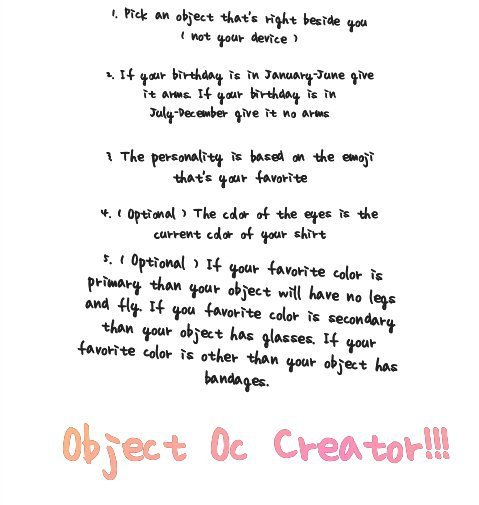 1. Pick an object that's right beside you
( not your device )
2. If your birthday is in January-June give
it arms. If your birthday is in
July-December give it no arms
3 The personality is based on the emoji
that's your favorite
4. ( Optional ) The color of the eyes is the
current color of your shirt
5. ( Optional ) If your favorite color is
primary than your object will have no legs
and fly. If you favorite color is secondary
than your object has glasses. If your
favorite color is other than your object has
bandages.
Object Oc Creator!!!